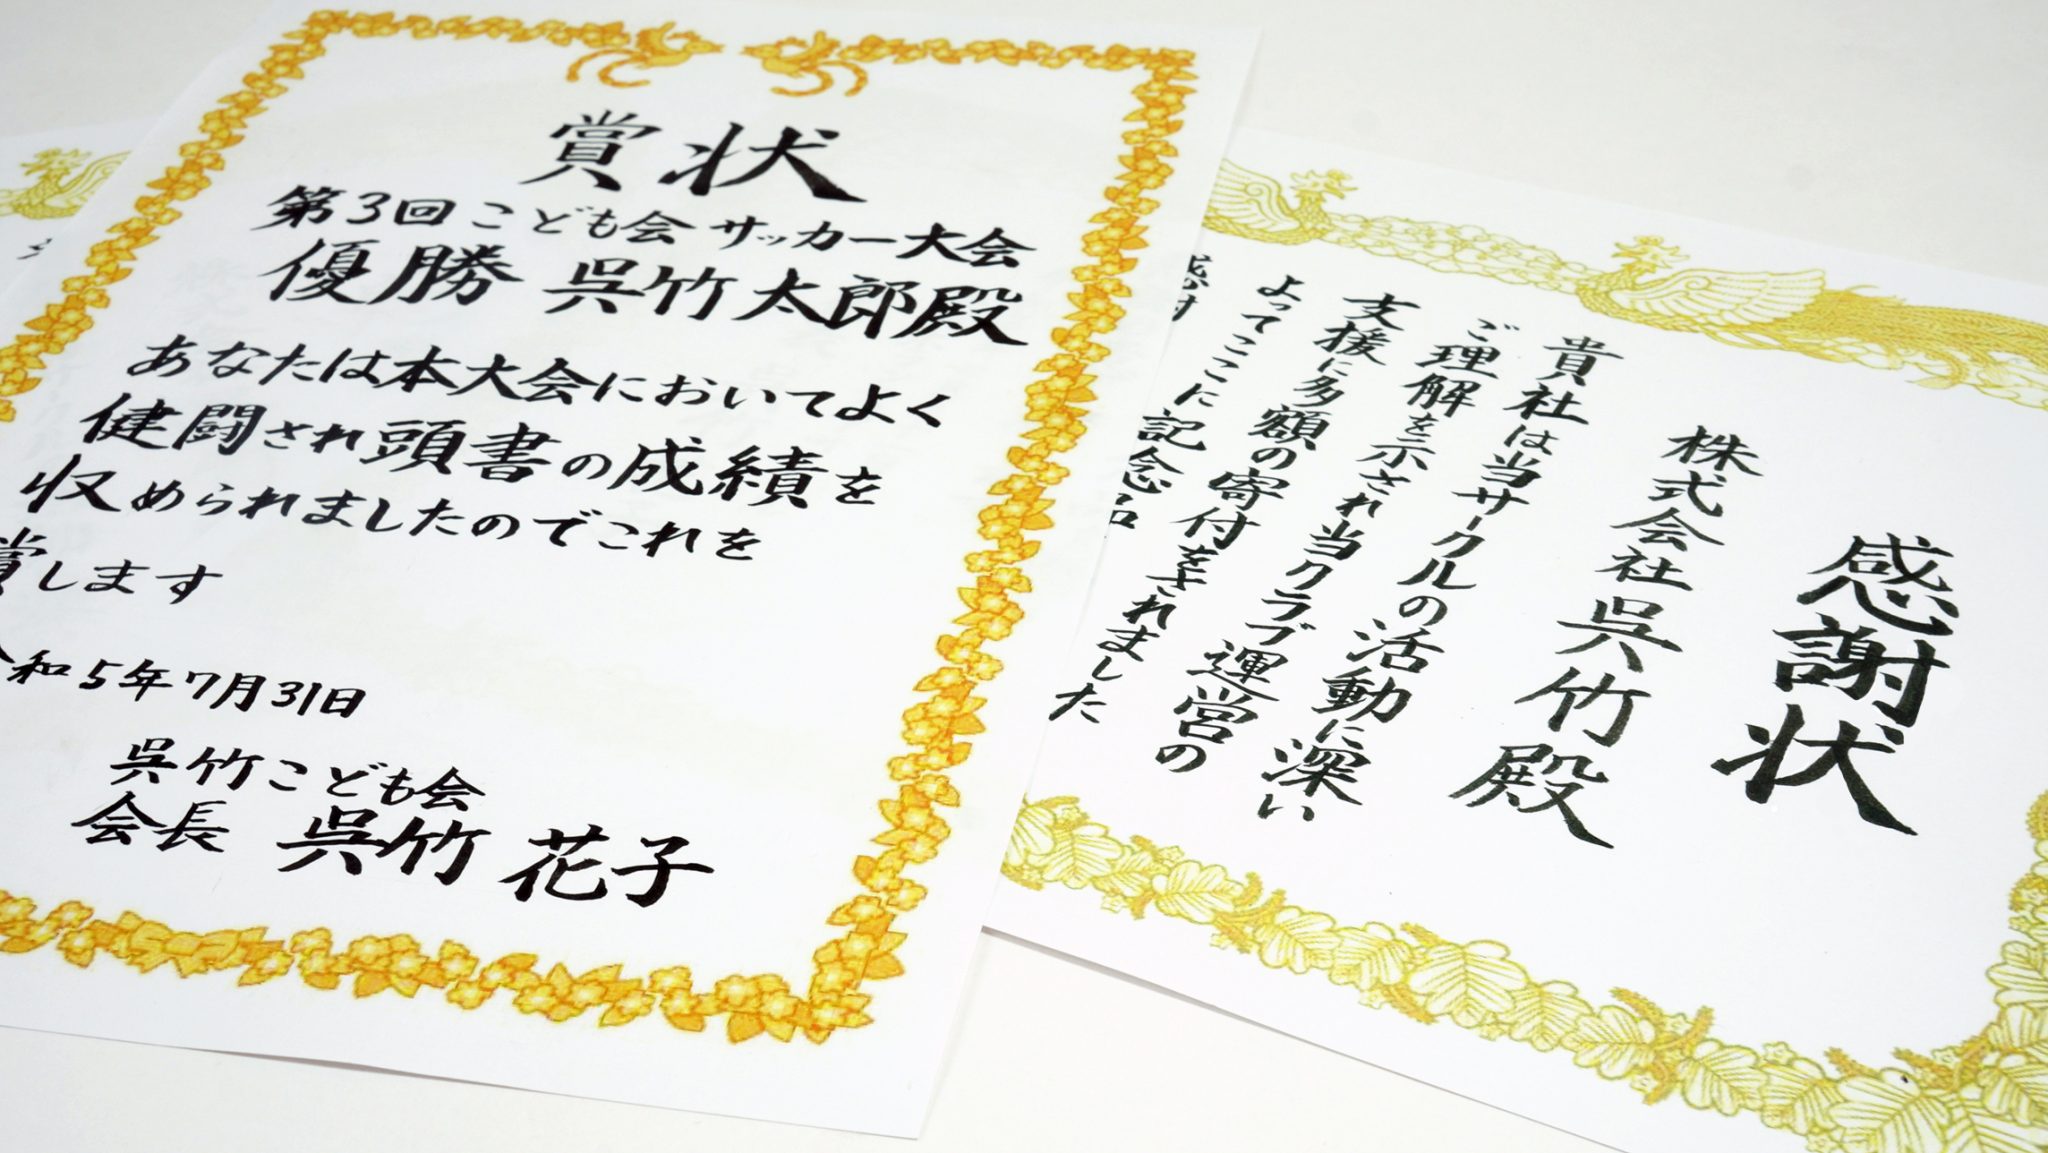 賞状
第3回こども会サッカー大会
優勝 呉竹太郎殿
あなたは本大会においてよく
健闘され頭書の成績を
収められましたのでこれを
賞します
令和5年7月31日
呉竹こども会
会長 呉竹花子
感謝状
株式会社呉竹殿
貴社は当サークルの活動に深い
ご理解を示され当クラブ運営の
支援に多額の寄付をされました
よってここに記念品